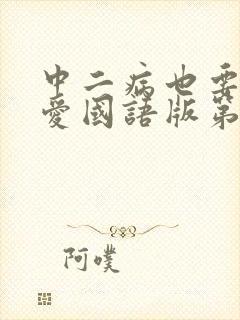 中二病也要
愛國語版第
阿噗